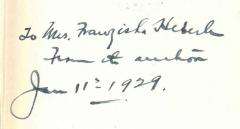 To Mrs. Franziska Heberle
From the author
Jan 11th 1929.